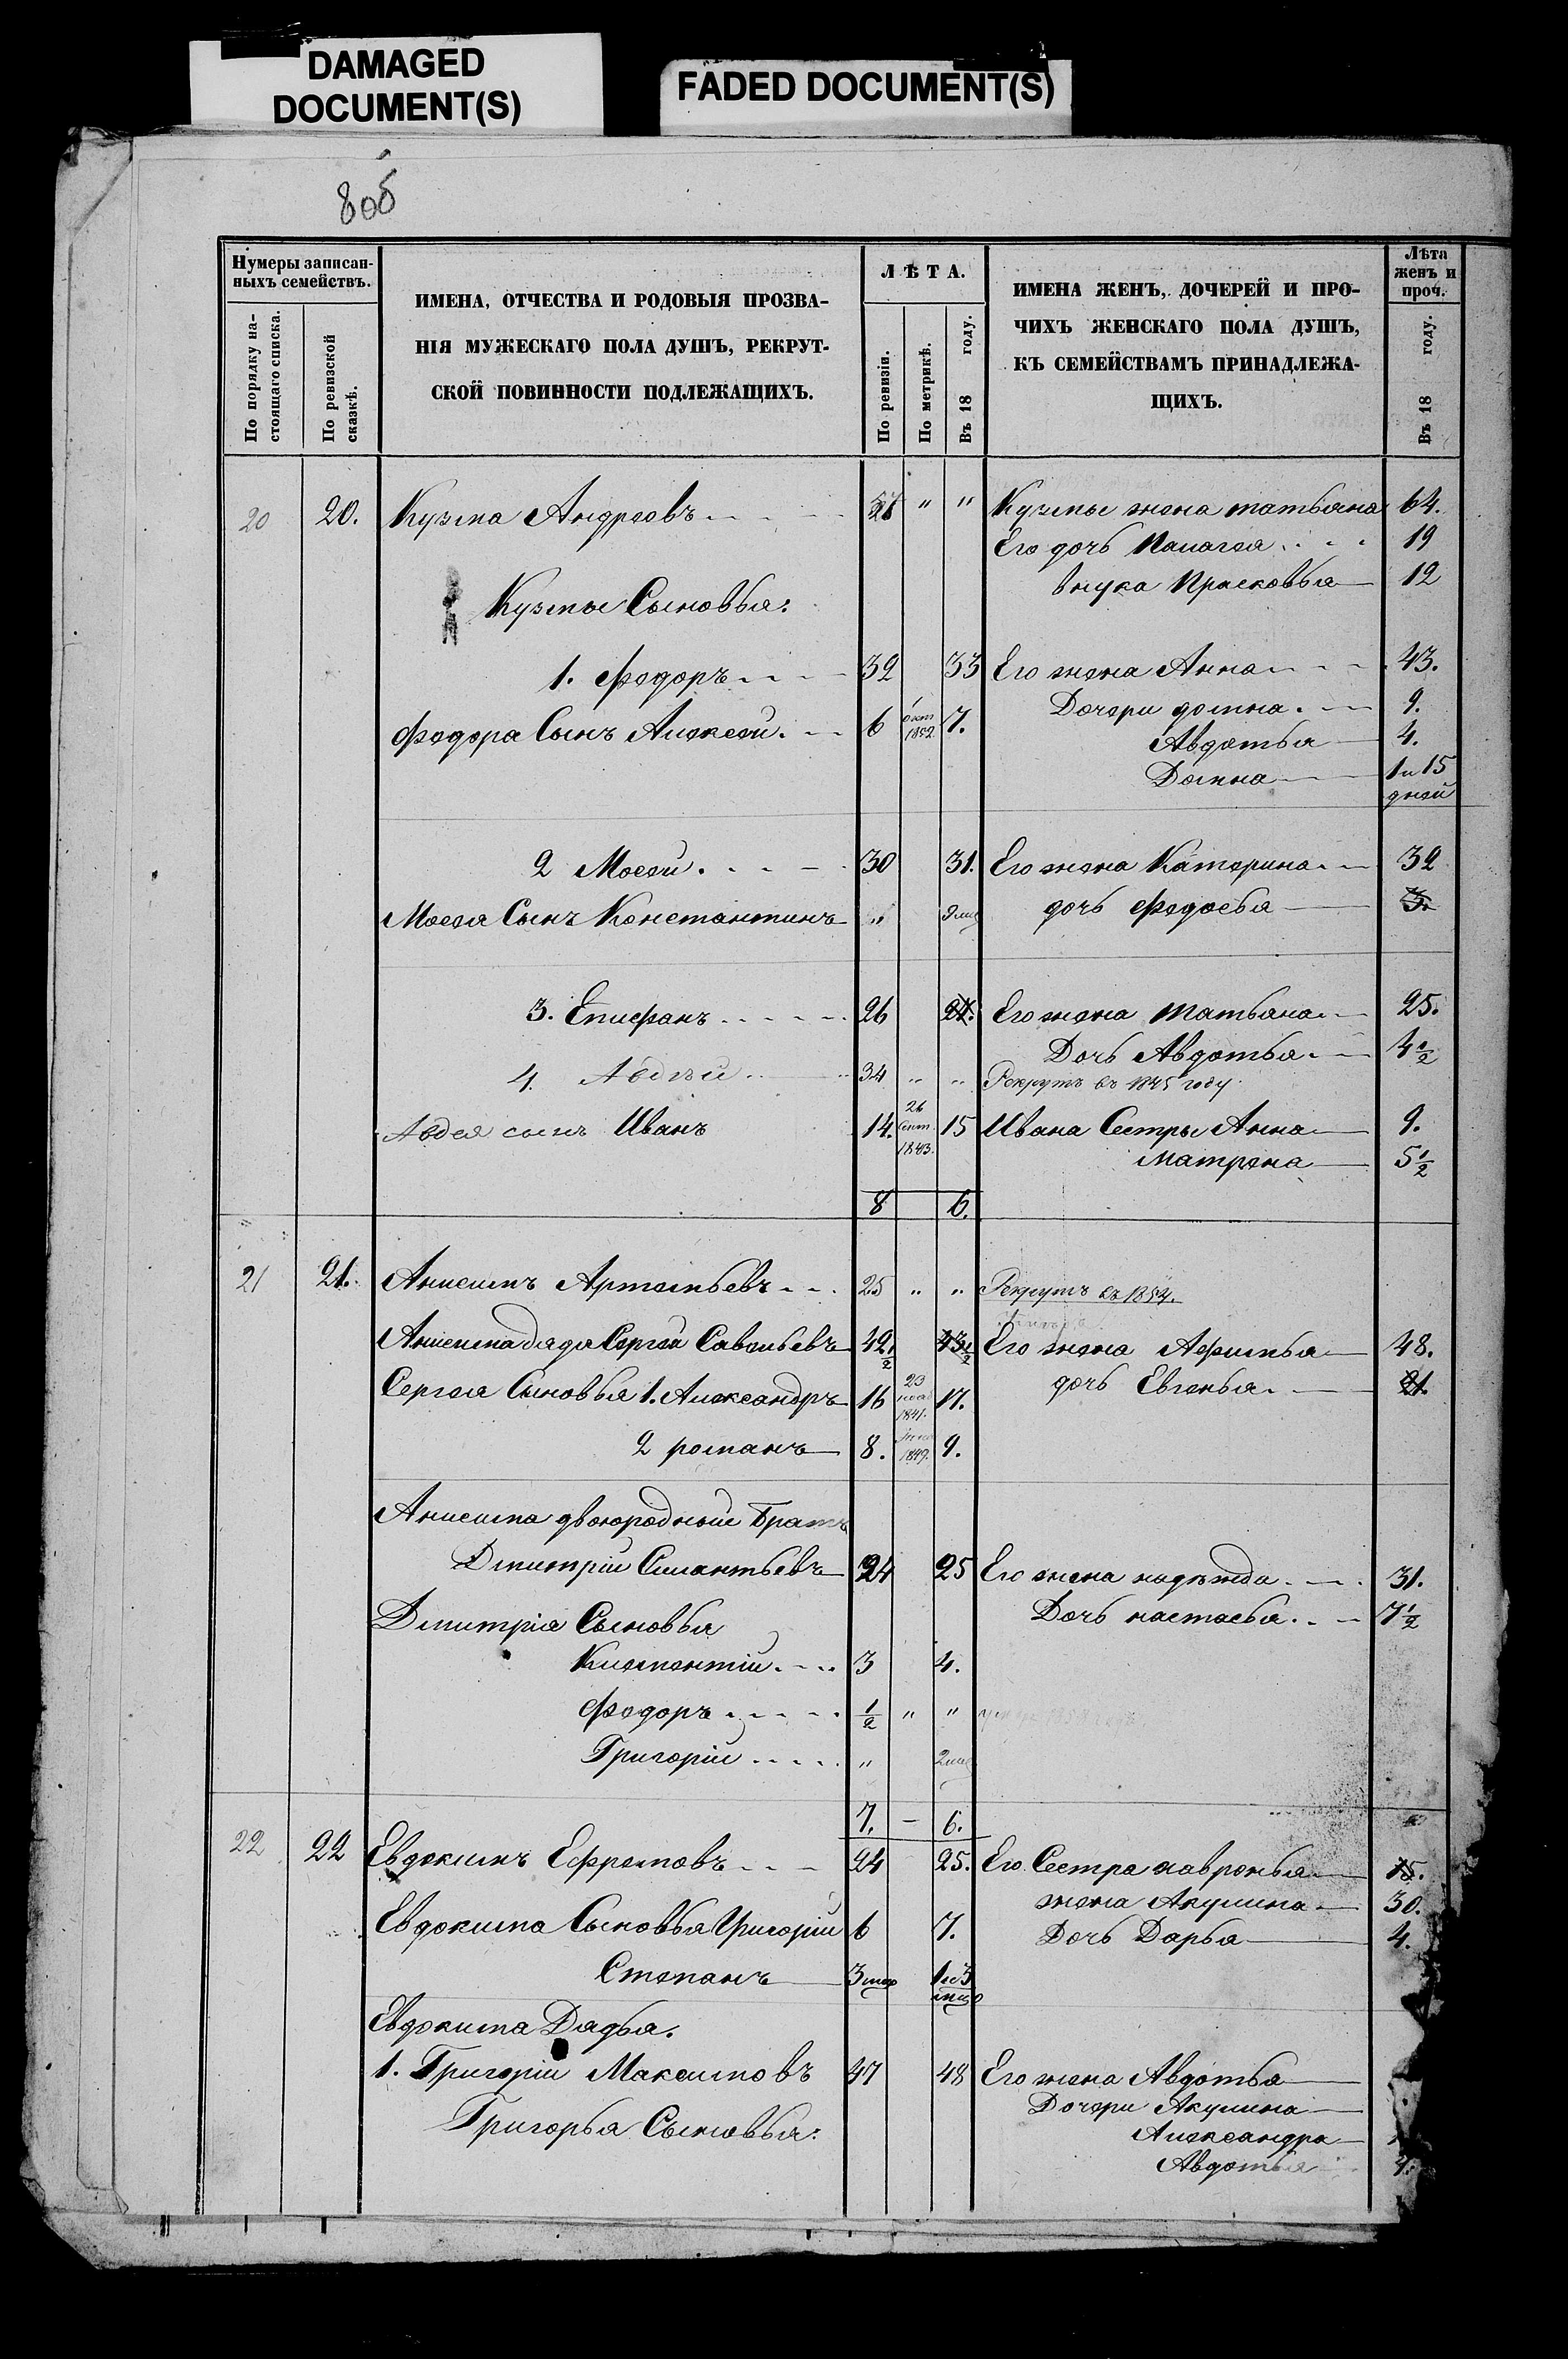 DAMAGED
DOCUMENT(S)
FADED DOCUMENT(S)
8об
Нумеры записан-
ныхъ семействъ.
По порядку на-
стоящаго списка.
По ревизской
сказкѣ.
ИМЕНА, ОТЧЕСТВА И РОДОВЫЯ ПРОЗВА-
НІЯ МУЖЕСКАГО ПОЛА ДУШЪ, РЕКРУТ-
СКОЙ ПОВИННОСТИ ПОДЛЕЖАЩИХЪ.
ЛѢТА.
По ревизіи.
По метрикѣ.
Въ 18 году.
ИМЕНА ЖЕНЪ, ДОЧЕРЕЙ И ПРО-
ЧИХЪ ЖЕНСКАГО ПОЛА ДУШЪ,
КЪ СЕМЕЙСТВАМЪ ПРИНАДЛЕЖА-
ЩИХЪ.
Лѣта
женъ и
проч.
Въ 18 году.
20 20. Кузма Андреевъ " " Кузмы жена татьяна 64.
Его дочь Палагея 19
внука Прасковья 12
Кузмы Сыновья:
1. Федоръ 32 33 Его жена Анна 43.
Дочери домна 9.
Федора Сынъ Алексей 6 1 окт 1852 7. Авдотья 4.
Домна 1 и 15
дней
2 Мосей 30 31. Его жена Катерина 32
Мосея Сынъ Константинъ " дочь Федосья 3.
3. Епифанъ 26 Его жена татьяна 25.
Дочь Авдотья 4 1/2
4. Авдѣй 34 " " Рекрутъ въ 1845 году.
Авдея сынъ Иванъ 14. 26 Сент 1843. 15 Ивана Сестры Анна 9.
Матрена 5 1/2
8 6.
21 21. Анисимъ Артемьевъ 25 " " Рекрутъ въ 1854.
Анисима дядя Сергей Савельевъ 42 1/2 43 1/2 Его жена Афимья 48.
дочь Евгенья 21.
Сергея Сыновья 1. Александръ 16 23 1841. 17.
2 романъ 8. 1849. 9.
Анисима двоюродный Братъ
Дмитрій Силантьевъ 24 25 Его жена надѣжда 31.
Дочь настасья 7 1/2
Дмитрія Сыновья
Клементій 3 4.
Федоръ 1/2 " "
Григорій " 2 мес
7. – 6.
22 22 Евдокимъ Ефремовъ 24 25. Его Сестра хавронья 15.
жена Акулина 30.
Евдокима Сыновья Григорій 6 7. Дочь Дарья 4.
Степанъ 3 мес 1 и 3
Евдокима Дядья.
1. Григорій Максимовъ 47 48 Его жена Авдотья
Дочери Акулина
Григорья Сыновья: Александра
Авдотья